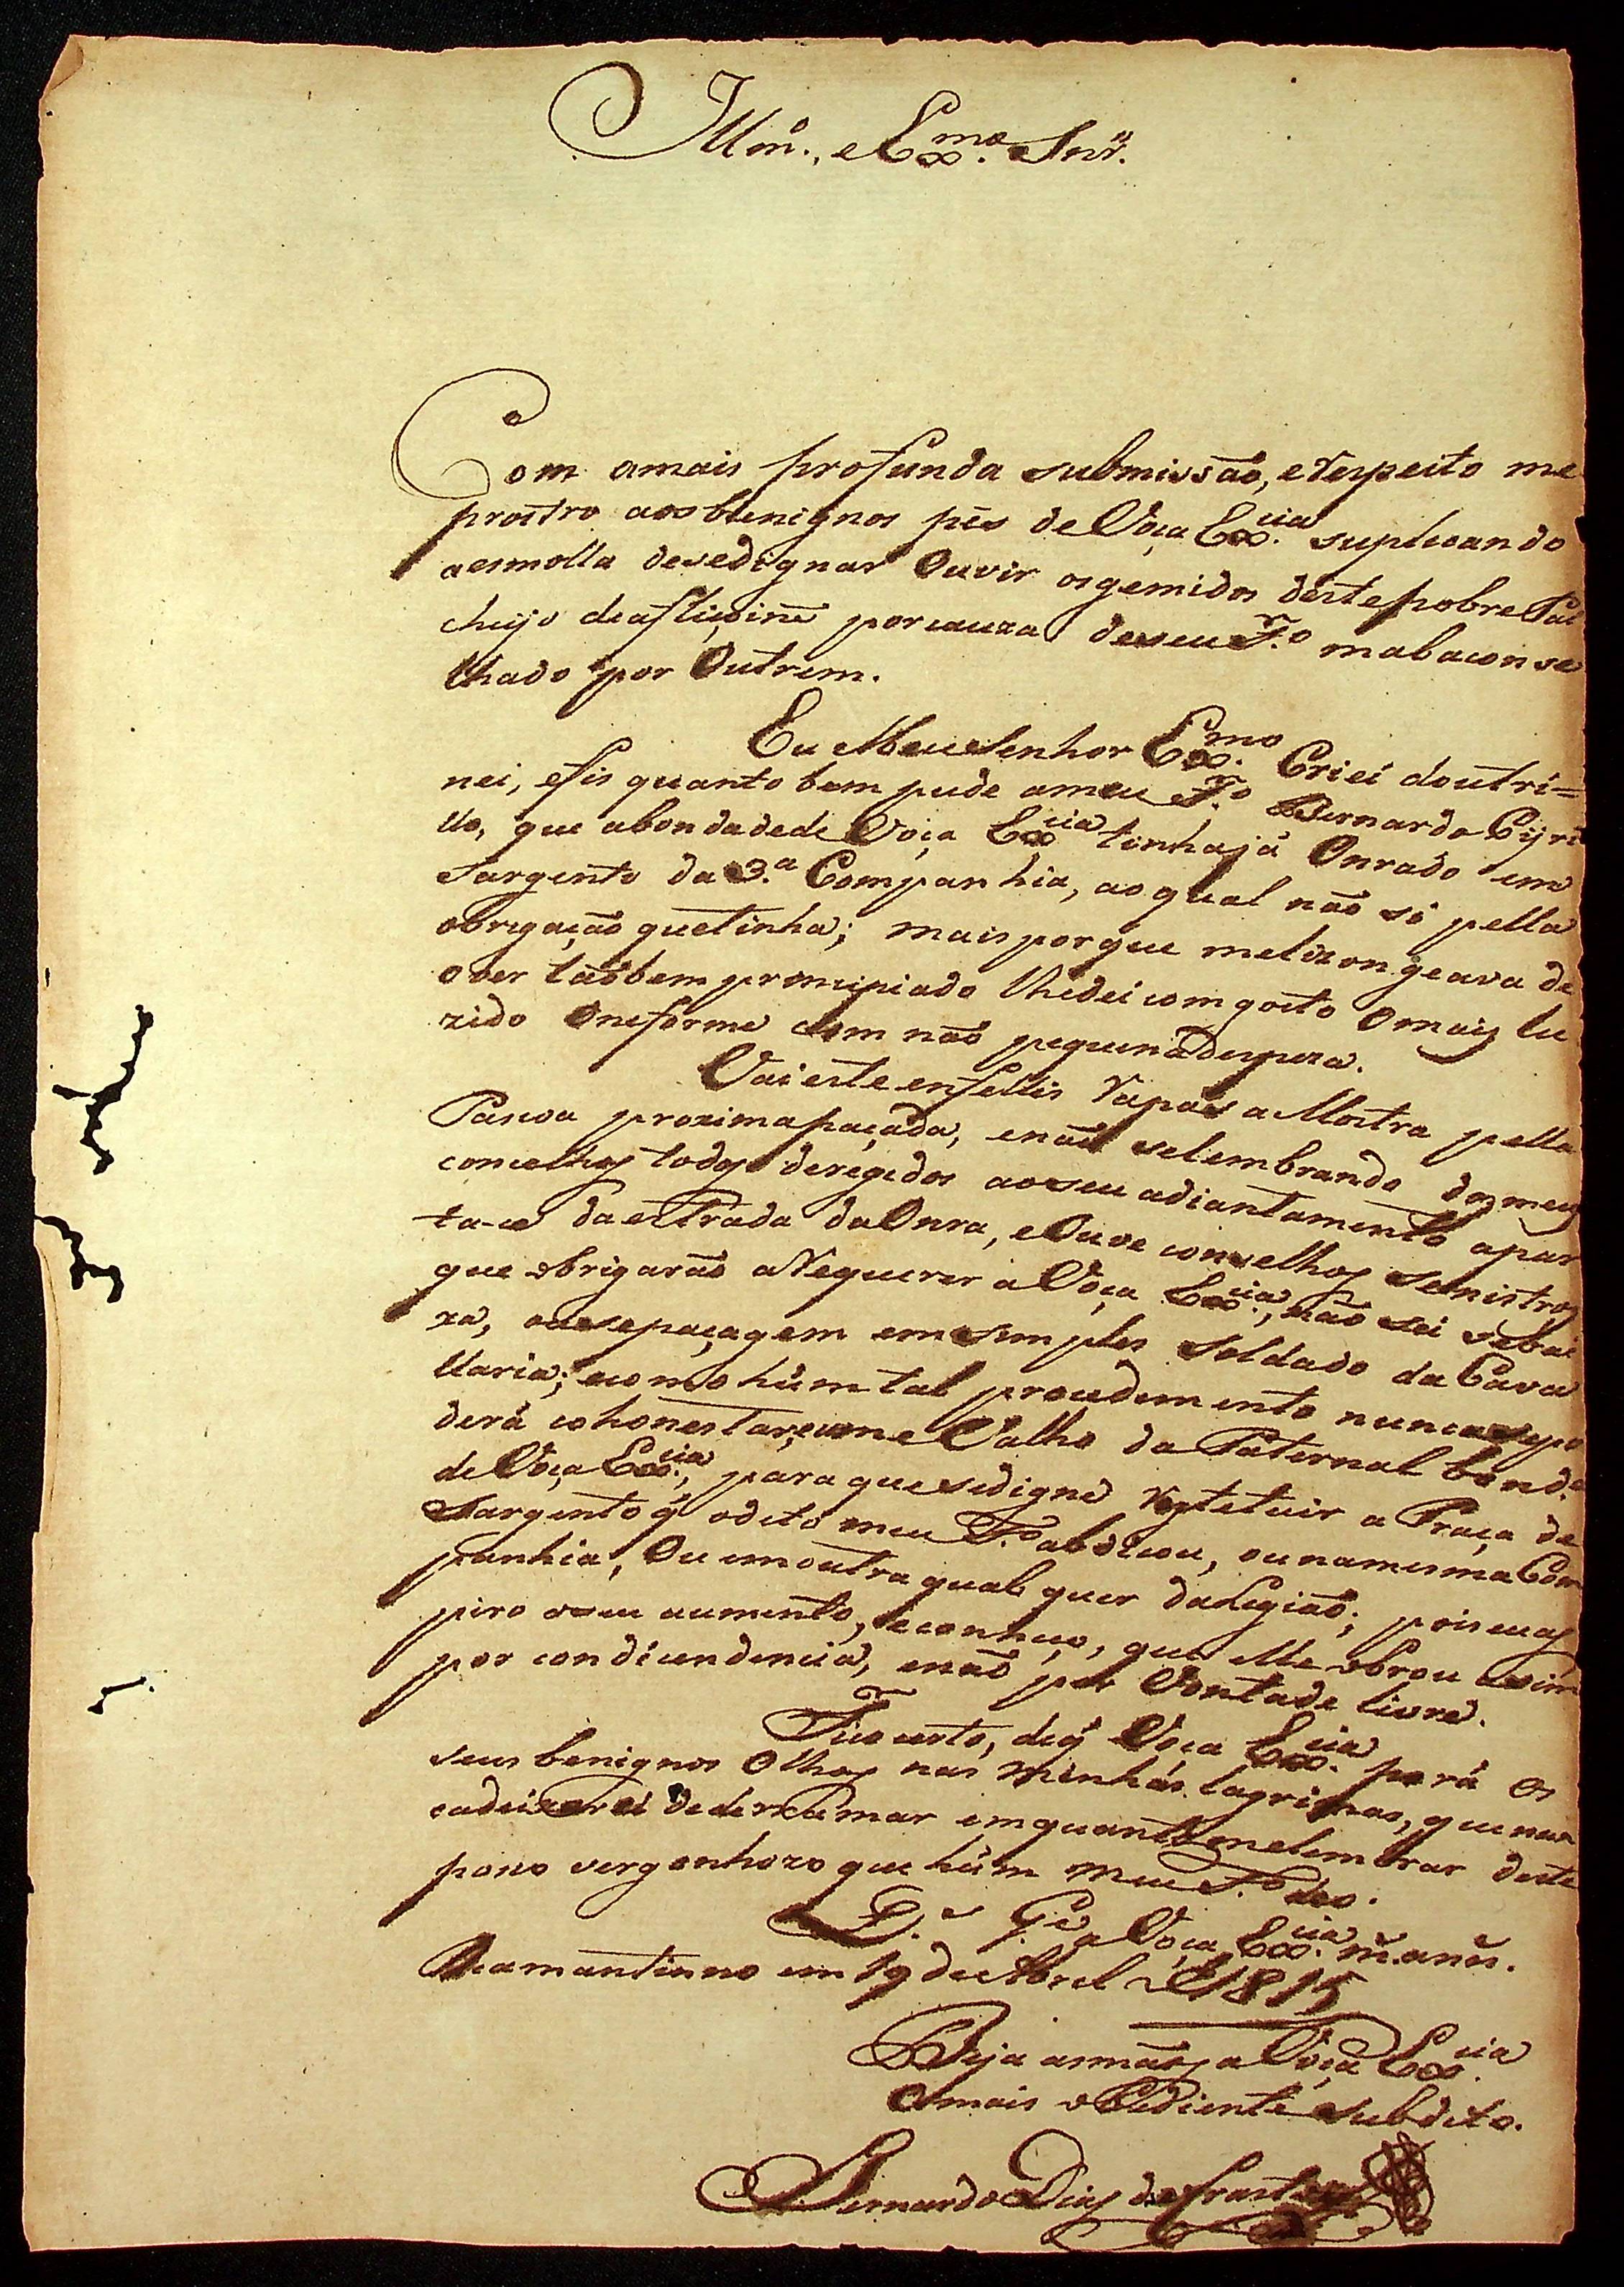 Illmo., e Exmo. Snr.
Com amais profunda submissão, erespeito me
prostro aosbenignos pés de Voça Excia. suplicando
aesmolla desedignar Ouvir osgemidos destepobre Pai
cheijo deafliçoins porcauza deseu Fo. malaconse
lhado por Outrem.
Eu Meu Senhor Exmo. Criei doutri=
nei, efis quanto bem pude ameu Fo. Bernardo Cijri
llo, que abondadede Voça Excia tinhajá Onrado em
Sargento da 3.a Companhia, ao qual não só pella
obrigação quetinha; mais porque melizongeava de
over tãobem principiado lhedei com gosto Omais lu
zido Oneforme com não pequenadespeza.
Vai este enfellis rapas a Mostra pella
Pascoa proximapaçada, enaõ selembrando dos meus
concelhos todos deregidos aoseu adiantamento apar
ta-ce daestrada daOnra, eOuve conselhos senistros
que obrigarão aRequerer a Voça Excia., não sei sebai
xa, ousepaçagem emsimples Soldado da Cava
llaria; ecomo húm tal procedimento nuncasepo
derá cohonestar, me Valho da Paternal bond.e
de Voça Excia., para quesedigne restetuir a Praça de
Sargento q̃ odito meu Fo. abdicou, ounamesma Com
panhia, Ou emoutra qual quer daLegião; poiseuas
piro oseu aumento, econheço, que elle obrou asim
por condicendencia, enaõ por Vontade livre.
Fico certo, deq̃ Voça Excia. porá os
seus benignos Olhos nas minhas lagrimas, que nun
cadeixarei dederramar emquantomelembrar deste
paso vergonhozo que húm meu Fo. deo.
D.s G.e a Voça Excia. m. ann.
Diamantinno em 19 de Abrel de 1815
Beja asmãos a Voça Excia
Omais obediente subdito.
Bernardo Dias de